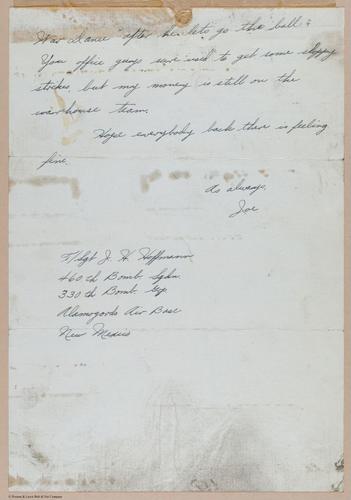 War Dance" after he lets go the ball?
You office guys sure used to get some sloppy
strikes, but my money is still on the
warehouse team.
Hope everybody back there is feeling
fine.
As always,
Joe
T/Sgt J. H. Hoffmann
460th Bomb. Sqdn.
330th Bomb. Grp.
Alamogordo Air Base
New Mexico